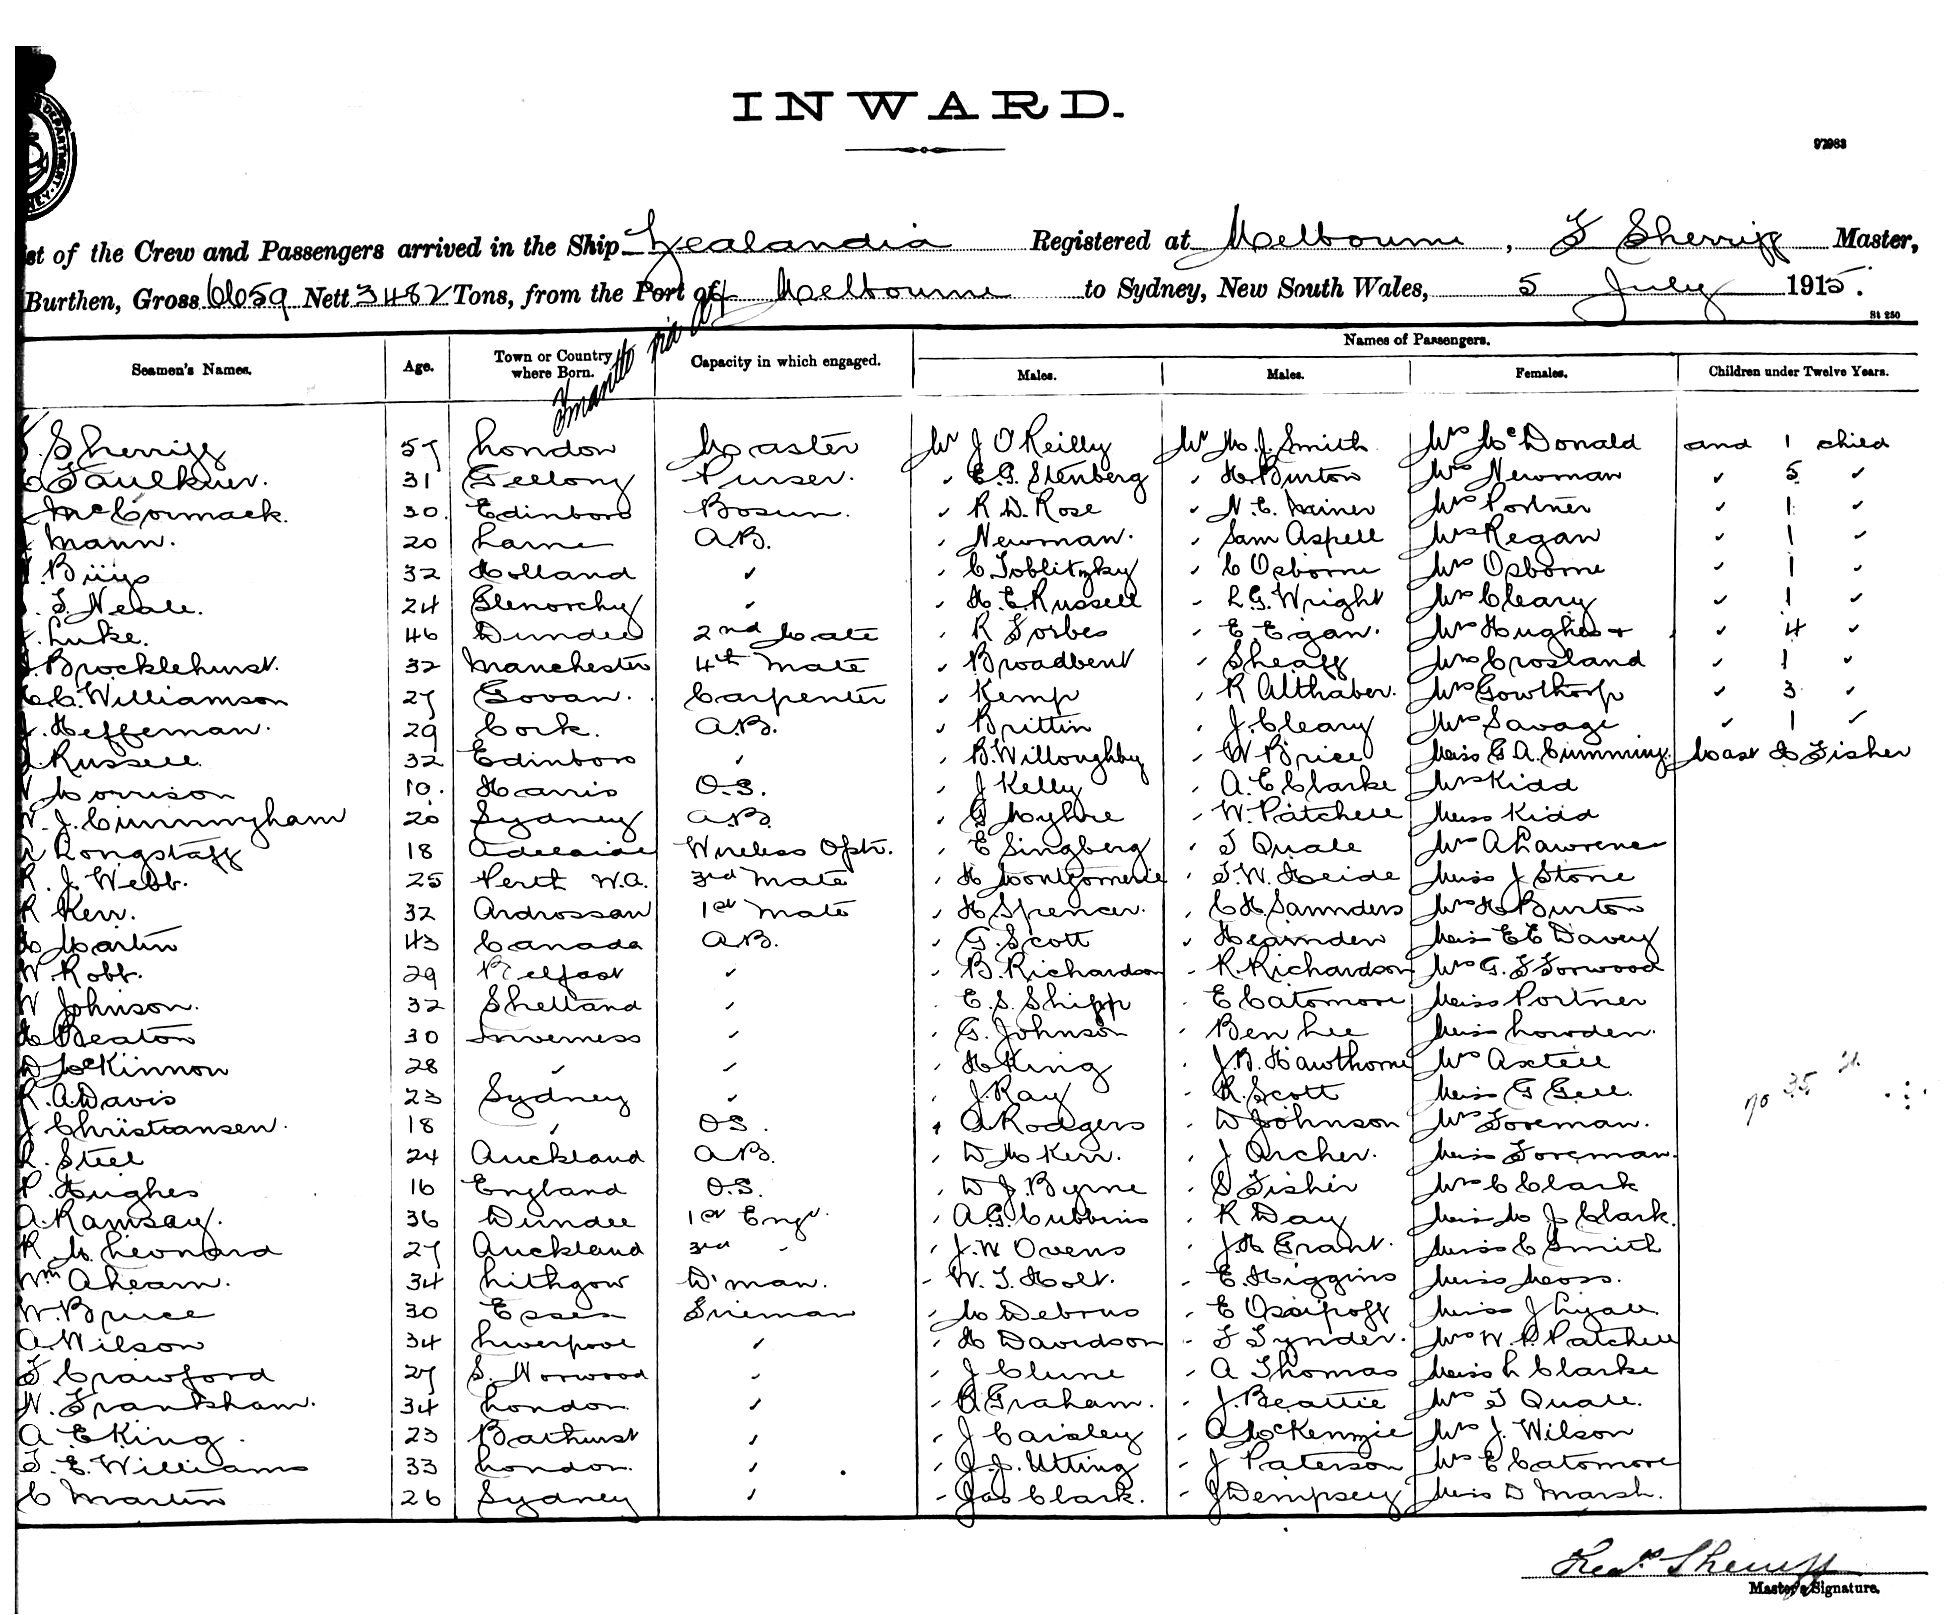 INWARD.
97983
st of the Crew and Passengers arrived in the Ship Zealandia Registered at Melbourne, F Sherriff Master,
Burthen, Gross 6659 Nett 3482 Tons, from the Port of Melbourne to Sydney, New South Wales, 5 July 1915.
St 250
Fremantle via
Names of Passengers.
Seamen's Names. Age. Town or Country where Born. Capacity in which engaged. Males. Males. Females. Children under Twelve Years.
Sherriff 57 London Master Mr J O'Reilly Mr M. J. Smith Mrs McDonald and 1 child
Faulkner. 31 Geelong Purser. " E. G. Stenberg " H Burton Mrs Newman " 5 "
McCormack. 30. Edinboro Bosun. " R D. Rose " N. E. Mrs Portner " 1 "
Mann. 20 Larne A.B. " Newman. " Sam Aspell Mrs Regan " 1 "
32 Holland " " C Toblitzky " C Osborne Mrs Osborne " 1 "
Neale. 24 Glenorchy " " H. E. Russell " L. G. Wright Mrs Cleary " 1 "
Luke. 46 Dundee 2nd Mate " R Forbes " E Egan. Mrs Hughes + " 4 "
Brocklehurst. 32 Manchester 4th Mate " Broadbent " Sheaff Mrs Crosland " 1 "
C. Williamson 27 Govan. Carpenter " Kemp " R Althaber. Mrs Gowthorp " 3 "
J. Heffernan. 29 Cork. A.B. " Brittin " J. Cleary Mrs Savage " 1 "
Russell. 32 Edinboro " " B. Willoughby " W Price Miss G. A. Cumming. Mast H Fisher
Morrison 10. Harris O.S. " J Kelly " A. E Clarke Mrs Kidd
W. J. Cunnyngham 20 Sydney A.B. " G " W. Patchell Miss Kidd
Longstaff 18 Adelaide Wireless Optr. " E Singberg " T Quale Mrs A Lawrence
R. J. Webb. 25 Perth W.A. 3rd Mate " H Montgomerie " F. W. Heide Miss J Stone
R Kerr. 32 Ardrossan 1st Mate " H Spencer. " C H Saunders Mrs H Burton
H Martin 43 Canada A.B. " G. Scott " Hearnden Miss E E Davey
W. Robb. 29 Belfast " " B. Richardson " R Richardson Mrs G. F Forwood
W Johnson. 32 Shetland " " E. S. Shipp " E Catomore Miss Portner
H Beaton 30 Inverness " " G. Johnson " Ben Lee Miss Lowden.
D McKinnon 28 " " " H King " J. B. Hawthorne Mrs Axtell
R. A. Davis 23 Sydney " " J. Ray " R. Scott Miss G Gell.
no 35
J Christiansen. 18 " O.S. " A Rodgers " D Johnson Mrs Foreman.
R. Steel 24 Auckland A.B. " D M Kerr. " J Archer. Miss Foreman.
P. Hughes 16 England O.S. " D J. Byrne " S Fisher Mrs C Clark
A. Ramsay. 36 Dundee 1st Engr. " A. G. Cubbins " R Day Miss M J Clark.
R. M. Leonard 27 Auckland 3rd " " J. W Ovens " J. H Grant. Miss C Smith
Wm Ahearn. 34 Lithgow D'man. " W. T. Holt. " E. Higgins Miss Moss.
W. Bruce 30 Essex Fireman " M Debrus " E Ossipoff Miss J Lyall
A. Wilson 34 Liverpool " " H Davidson " F Tynder. Mrs W. P. Patchell
F Crawford 27 S. Norwood " " J Clune " A Thomas Miss L Clarke
W. Franksham. 34 London " " R Graham. " J. Beattie Mrs T Quale.
A. E King. 23 Bathurst " " J Caisley " A McKenzie Mrs J. Wilson
T. E. Williams 33 London. " " J. J. Utting " J Paterson Mrs E Catomore
C Martin 26 Sydney " " Jas Clark. " J Dempsey Miss D Marsh.
Sherriff
Master's Signature.